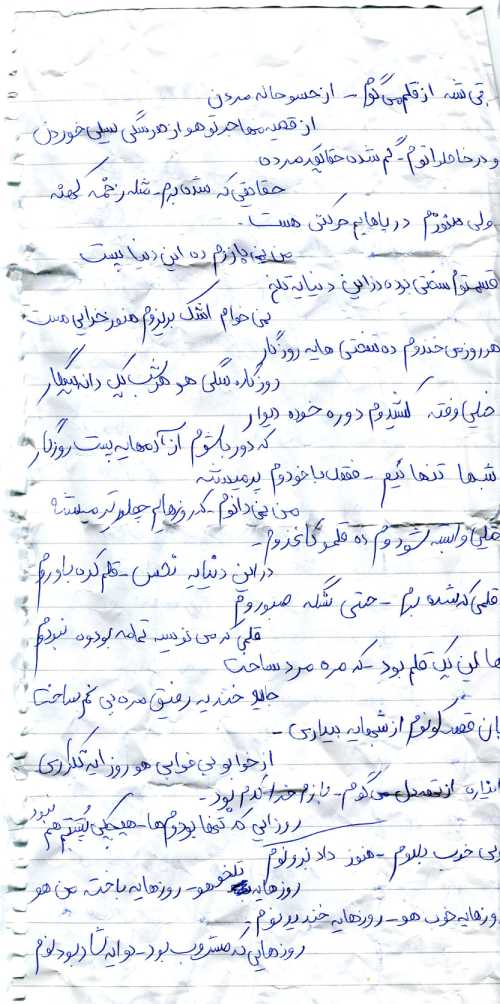 تی شه از قلم می گوم - از حسو حاله مردن
از قصیه مهاجر تو هو از هر سگی سیلی خوردن
و در خاطراتوم - گم شده حقایقه مرده
حقایقی که شده برم - مثله زخمه کهنه
ولی هنوزم در پاهایم حرکتی هست -
من نمی بازم ده این دنیا پست
قسمتوم سختی بوده در این دنیایه تلخ
نمی خوام اشک بریزوم هنوز خدایی هست
هر روز می خندوم ده سختی هایه روزگار
روزگاره سگی هو هر شب یک دانه سیگار
خیلی وقته کشیدوم دوره خوده دیوار
که دور باشوم از آدمهایه پست روزگار
شبها تنهائیم - فقط با خودوم پر میشه
من نمی دانوم - که روزهایم چطور تیر میشه
خیلی وابسته شودوم ده قلمو کاغذوم -
در این دنیایه نحس - قلم کده باوروم
قلمی که شده برم - حتی سنگه صبوروم
قلمی که می نویسه تمامه بودوه نبودوم
ها این یک قلم بود - که مره مرد ساخت
خنده یه رفیق مره بی غم ساخت
قصه گونوم از شبهایه بیداری -
از خوابو بی خوابی هو روزایه تکراری
می گوم - بازم خدا کدم بود -
روزایی که تنها بودوم ها - هیچکی پشتم هم نبود
خوب - هنوز داد نزدوم
روزهایه تلخو هو - روزهایه باخته من هو
روزهایه خوب هو - روزهایه خندیدنوم -
روزهایی که مشروب بود - دوایه شاد بودنوم